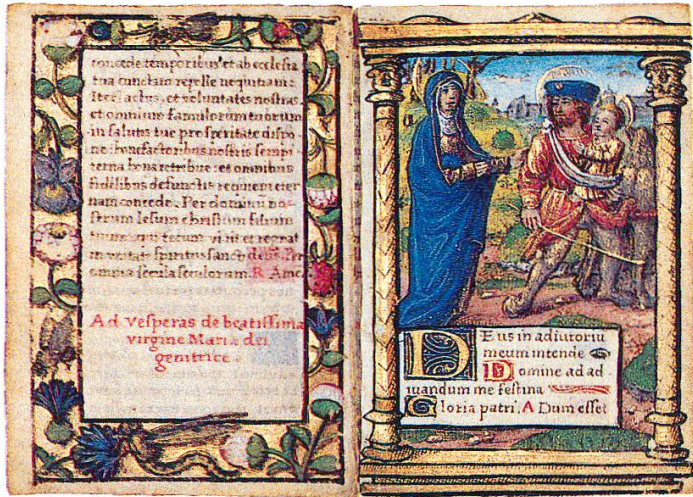 concede temporibus et ab ecclesia
tua cunctam repelle nequitiam:
iter actus, et voluntates nostras
et omnium famulorum tuorum
in salutis tue prosperitate dispo
ne: benefactoribus nostris sempi
terna bona retribue: et omnibus
fidelibus defunctis requiem eter
nam concede. Per dominum no-
strum Iesum christum filium
tuum: qui tecum vivit et regnat
in unitate spiritus sancti deus. Per
omnia secula seculorum. R. Ame.
Ad vesperas de beatissima
virgine Maria dei
genitrice.
DEus in adiutoriu
meum intende
Domine ad ad
iuandum me festina
Gloria patri. A Dum esset